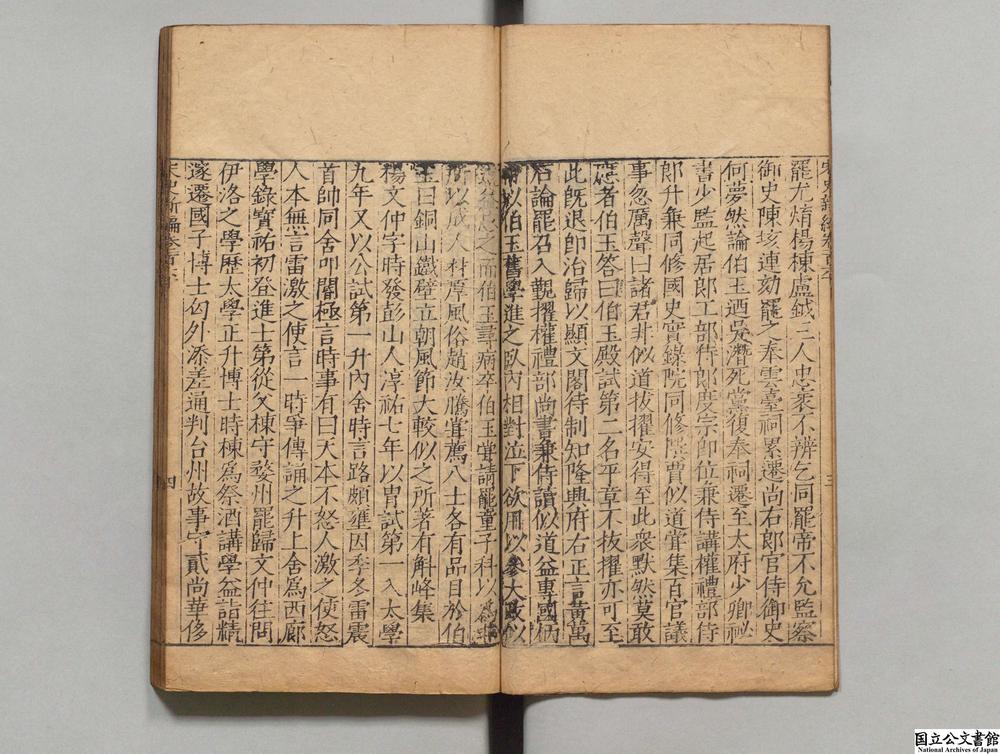 罷尤焴楊棟盧鉞三人忠衺不辨乞同罷帝不允監察
御史陳垓連劾罷之奉雲臺祠累遷尚右郎官侍御史
何夢然論伯玉迺吳潛死黨復奉祠遷至太府少卿祕
書少監起居郎工部侍郎度宗即位兼侍講權禮部侍
郎升兼同修國史實錄院同修撰賈似道嘗集百官議
事忽厲聲曰諸君非似道拔擢安得至此衆默然莫敢
應者伯玉答曰伯玉殿試第二名平章不拔擢亦可至
此既退即治歸以顯文閣待制知隆興府右正言黃萬
石論罷召入覲擢權禮部尚書兼侍讀似道益專國柄
帝以伯玉舊學進之臥內相對泣下欲用以參大政似
道益忌之而伯玉尋病卒伯玉嘗請罷童子科以爲非
所以成人材厚風俗趙汝騰嘗薦八士各有品目於伯
玉曰銅山鐵壁立朝風節大較似之所著有斛峰集
楊文仲字時發彭山人淳祐七年以胄試第一入太學
九年又以公試第一升內舍時言路頗壅因季冬雷震
首帥同舍叩閽極言時事有曰天本不怒人激之使怒
人本無言雷激之使言一時爭傳誦之升上舍爲西廊
學錄寶祐初登進士第從父棟守婺州罷歸文仲往問
伊洛之學歷太學正升博士時棟爲祭酒講學益詣精
邃遷國子博士匄外添差通判台州故事守貳尚華侈
宋史新編卷
三
四
国立公文書館
National Archives of Japan